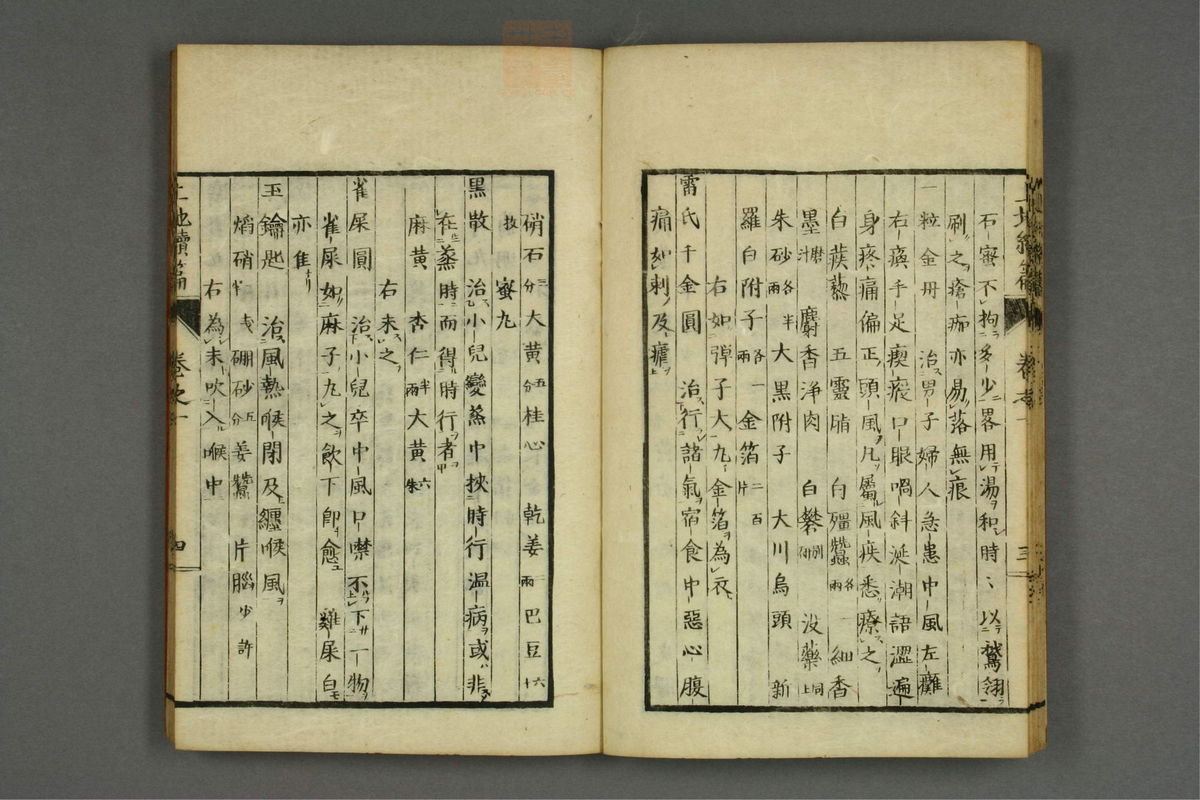 石蜜不拘多少畧用湯和時〻以鵞翎
刷之瘡痂亦易落無痕
一粒金丹　治男子婦人急患中風左癱
右瘓手足瘈瘲口眼喎斜涎潮語澀遍
身疼痛偏正頭風凡屬風疾悉療之
白蒺藜　五靈脂　白殭蠶各一兩　細香
墨磨汁　麝香淨肉　白礬別研　没藥同上
朱砂各半兩　大黑附子　大川烏頭　新
羅白附子各一兩　金箔二百片
右如弾子大丸金箔為衣
雷氏千金圓　治行諸氣宿食中惡心腹
痛如刺及瘧
三
硝石三分　大黄五分　桂心　乾姜二兩　巴豆六十
枚　蜜丸
黒散　治小兒變蒸中挾時行温病或非
在蒸時而得時行者
麻黄　杏仁半兩　大黄六朱
右末之
雀屎圓　治小兒卒中風口噤不下一物
雀屎如麻子丸之飲下即愈　雞屎白
亦佳
玉鑰匙　治風熱喉閉及纏喉風
焰硝　硼砂五分　姜蠶　片腦少許
右為末吹入喉中
續篇　卷之一　四